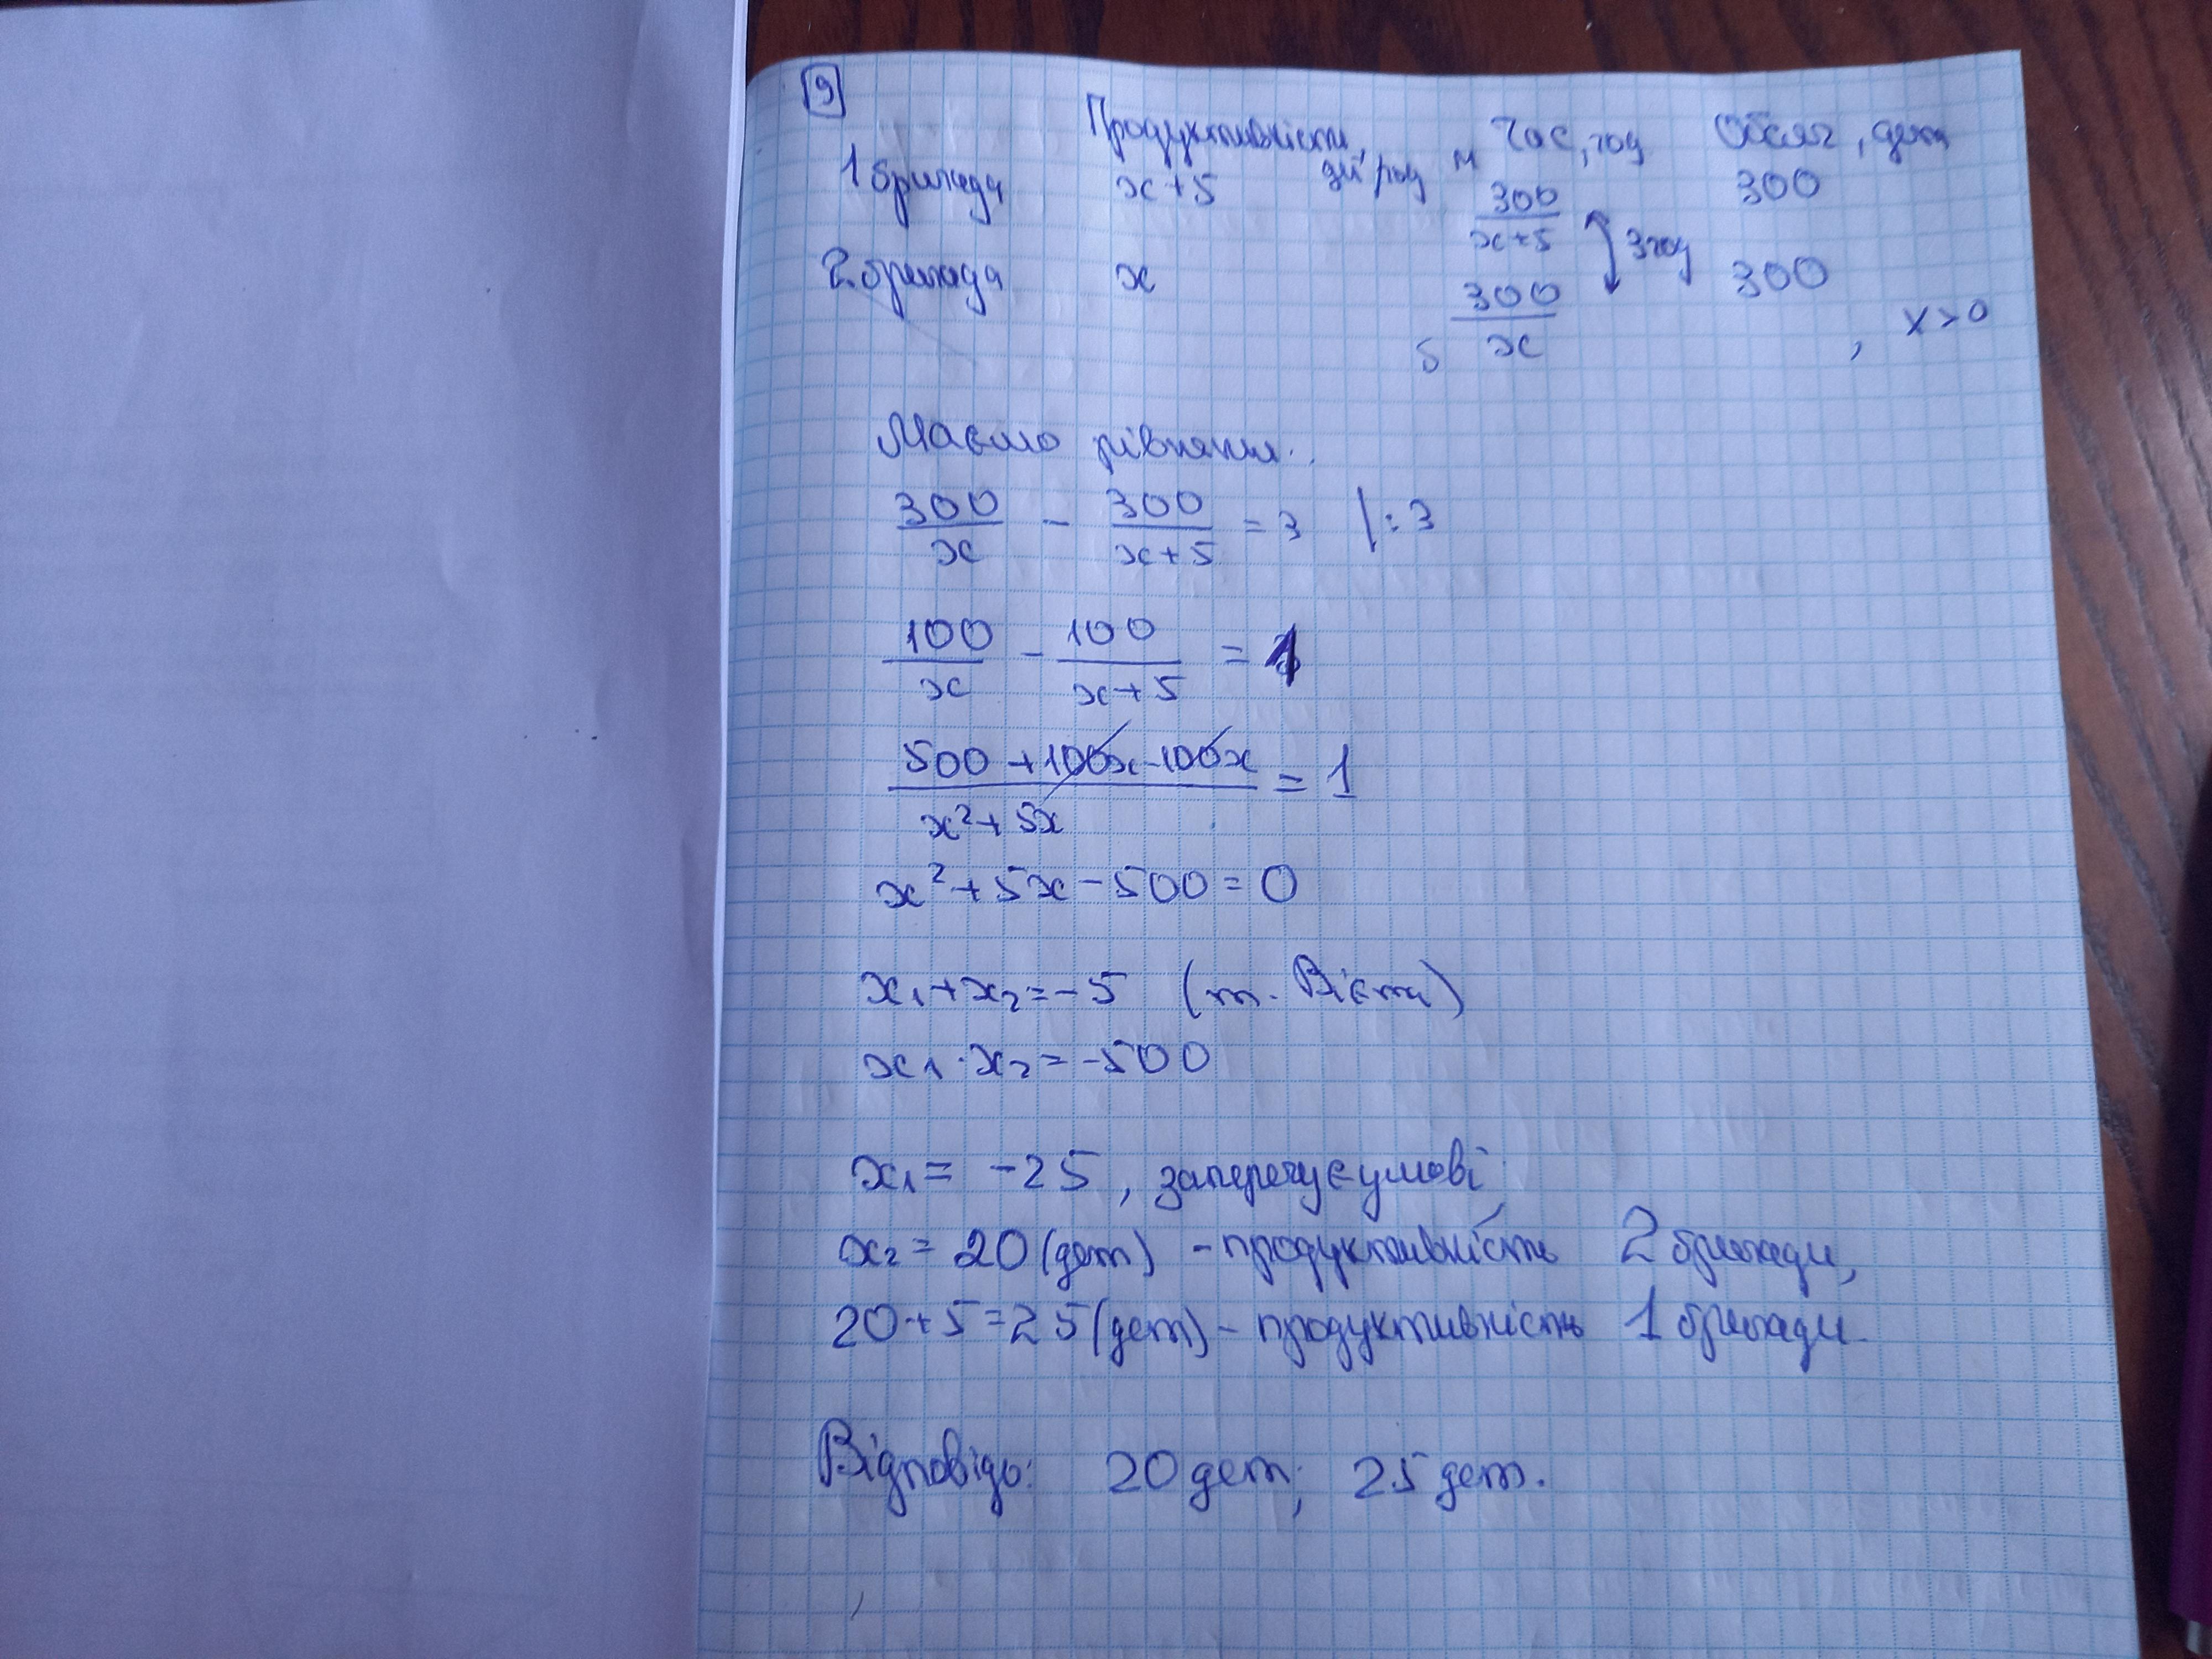 9
Продуктивність, дет/год Час, год Обсяг, дет
1 бригада x+5 300/(x+5) 300
3 год
2 бригада x 300/x 300
, x>0
Маємо рівняння.
300/x - 300/(x+5) = 3 |:3
100/x - 100/(x+5) = 1
(500+100x-100x)/(x²+5x) = 1
x²+5x-500=0
x₁+x₂=-5 (т. Вієта)
x₁·x₂=-500
x₁= -25, заперечує умові
x₂= 20(дет) - продуктивність 2 бригади,
20+5=25(дет) - продуктивність 1 бригади.
Відповідь: 20 дет; 25 дет.